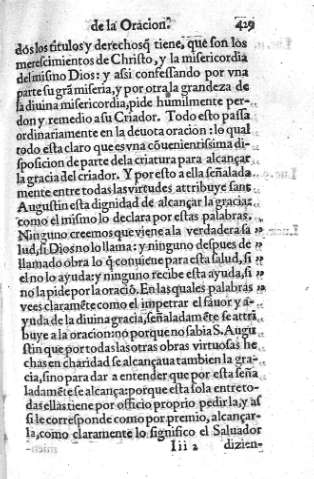 de la Oracion. 429
dos los titulos y derechos q̃ tiene, que son los
merescimientos de Christo, y la misericordia
del mismo Dios: y asi confessando por vna
parte su grã miseria, y por otra la grandeza de
la diuina misericordia, pide humilmente per-
don y remedio a su Criador. Todo esto passa
ordinariamente en la deuota oracion: lo qual
todo esta claro que es vna cõuenientissima di-
sposicion de parte dela criatura para alcançar
la gracia del criador. Y por esto a ella señalada
mente entre todas las virtudes attribuye sant
Augustin esta dignidad de alcançar la gracia:
como el mismo lo declara por estas palabras.
Ninguno creemos que viene a la verdadera sa „
lud, si Dios no lo llama: y ninguno despues de „
llamado obra lo q̃ conuiene para esta salud, si „
el no lo ayuda: y ninguno recibe esta ayuda, si „
no la pide por la oraciõ. En las quales palabras
vees claramẽte como el impetrar el fauor y a-
yuda de la diuina gracia, señaladamẽte se attri
buye a la oracion: no porque no sabia S. Augu
stin que por todas las otras obras virtuosas he
chas en charidad se alcançaua tambien la gra-
cia, sino para dar a entender que por esta seña
ladamẽte se alcança: porque esta sola entre to-
das ellas tiene por officio proprio pedirla, y as
si le corresponde como por premio, alcançar-
la, como claramente lo significo el Saluador
Iii 2 dizien-